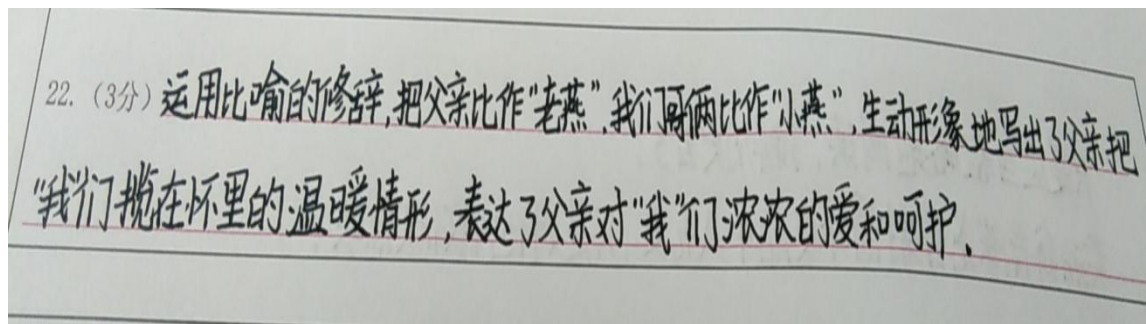 22.（3分）运用比喻的修辞,把父亲比作"老燕",我们哥俩比作"小燕",生动形象地写出了父亲把
"我"们揽在怀里的温暖情形,表达了父亲对"我"们浓浓的爱和呵护.